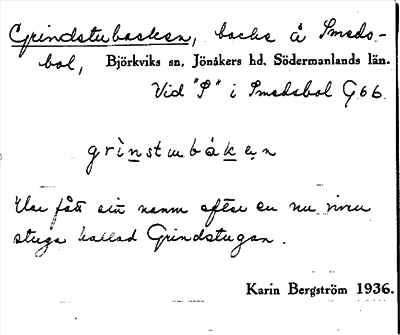 Grindstubacken, backe å Smeds-
bol, Björkviks sn, Jönåkers hd, Södermanlands län.
Vid "S" i Smedsbol G 66.
grìnstubákęn
Har fått sitt namn efter en nu riven
stuga kallad Grindstugan.
Karin Bergström 1936.